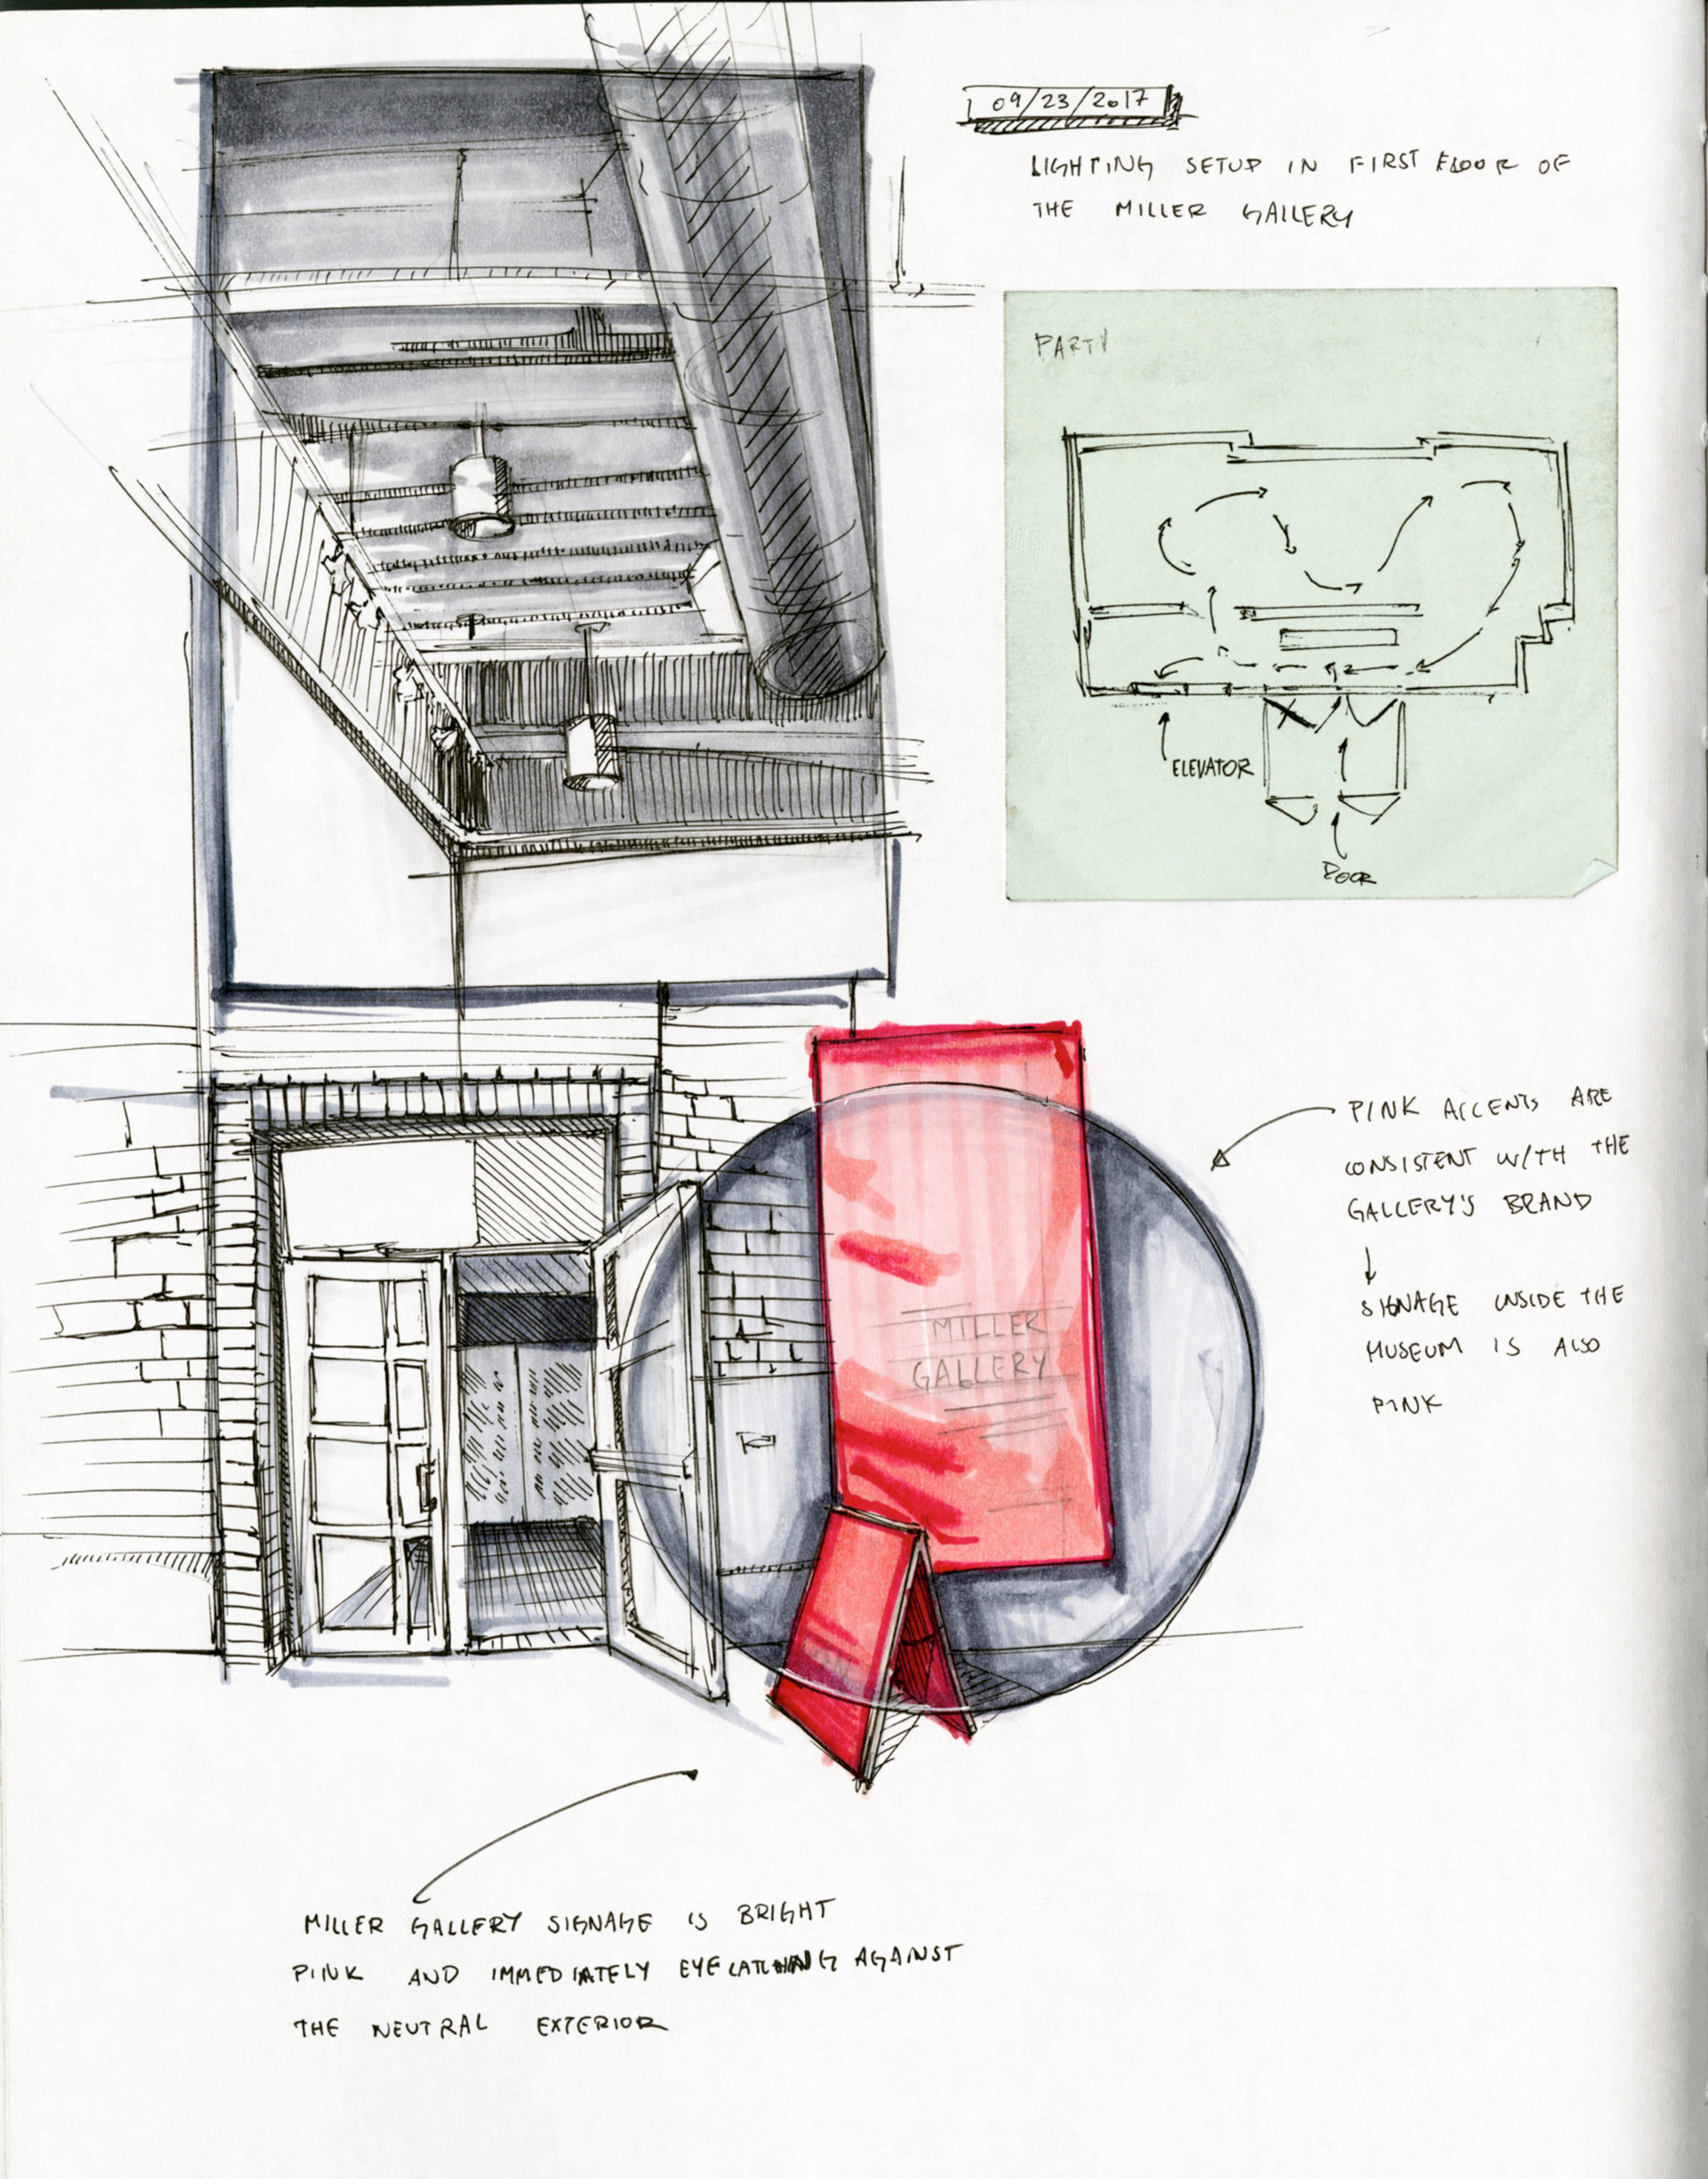 09/23/2017
LIGHTING SETUP IN FIRST FLOOR OF
THE MILLER GALLERY
PARTI
ELEVATOR
DOOR
PINK ACCENTS ARE
CONSISTENT WITH THE
GALLERY'S BRAND
SIGNAGE INSIDE THE
MUSEUM IS ALSO
PINK
MILLER
GALLERY
MILLER GALLERY SIGNAGE IS BRIGHT
PINK AND IMMEDIATELY EYECATCHING AGAINST
THE NEUTRAL EXTERIOR